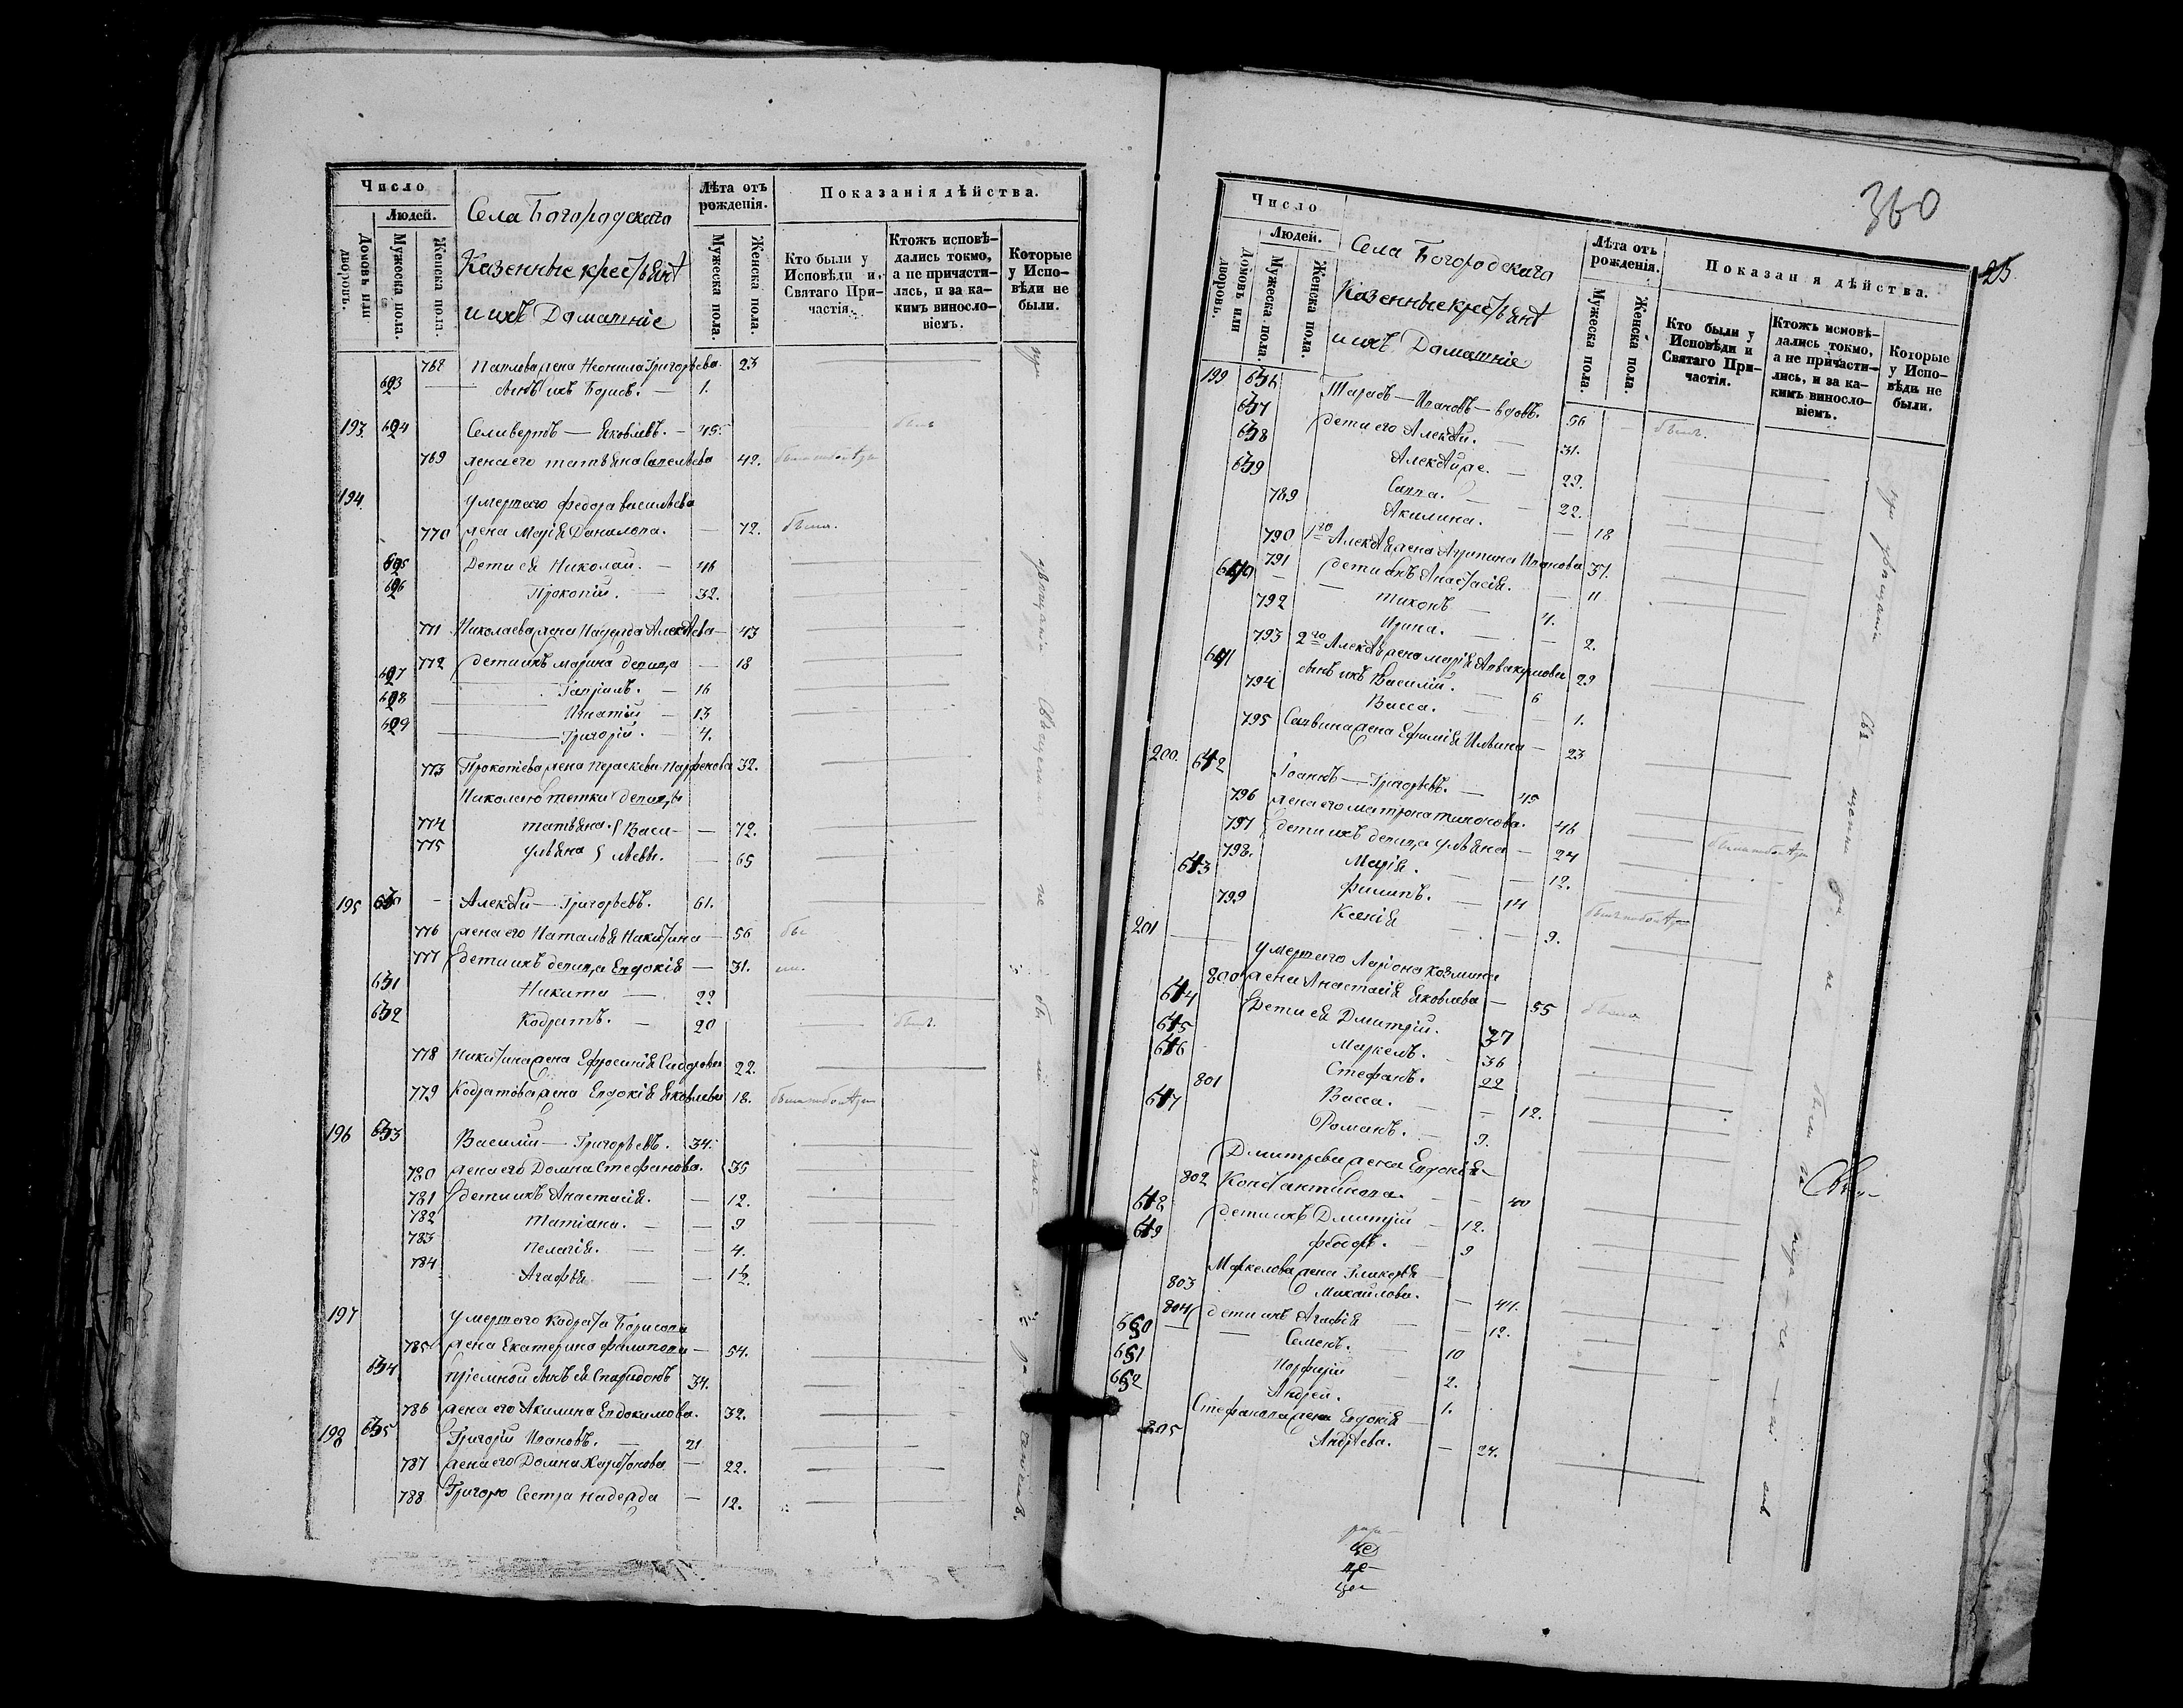 Число
Людей.
Домовъ или дворовъ.
Мужеска пола.
Женска пола.
Села Богородскаго
Казенные крестьянѣ
и ихъ Домашніе
Лѣта отъ рожденія.
Мужеска пола.
Женска пола.
Показанія дѣйства.
Кто были у Исповѣди и Святаго Причастія.
Ктожъ исповѣдались токмо, а не причастились, и за какимъ винословіемъ.
Которые у Исповѣди не были.
768 Павлова жена Неонила Григорьева 23
603 сынъ ихъ Борисъ. — 1.
193. 604 Селиверстъ — Яковлевъ. — 45.
769 жена его Татьяна Савельева 42.
194. умершаго Федора Васильева
770 жена Марія Данилова. — 72. была.
605 Дети ея Николай. — 46
606 Прокопій. — 32.
771 Николаева жена Надежда Алексѣева — 43
772 дети ихъ Марина девица — 18
627 Гавріилъ. — 16
628 Игнатій — 13
629 Григорій. 4.
773 Прокопіева жена Параскева Парфенова 32.
Николаю тетки девицы
774 Татьяна. Васи- — 72.
775 Ульяна льевы. — 65
195 630 — Алексѣй — Григорьевъ. 61.
776 жена его Наталья Никитина — 56
777 дети ихъ девица Евдокія — 31.
631 Никита — 22
632 Кодратъ. — 20
778 Никитина жена Ефросинія Сидорова 22.
779 Кодратова жена Евдокія Яковлева 18.
196 633 Василій — Григорьевъ. 34.
780 жена его Домна Стефанова. 35
781 дети ихъ Анастасія. — 12.
782 Татіана. — — 9
783 Пелагія. — — 4.
784 Агафья — — 1½.
197 умершаго Кодрата Борисова
785 жена Екатерина Филипова — 54.
634 пріемной сынъ ея Спиридонъ 34.
786 жена его Акилина Евдокимова. 32.
198 635 Григорій Ивановъ. — 21
787 жена его Домна Харитонова — 22.
788 Григорю Сестра Надежда — 12.
360
25
Число
Людей.
Домовъ или дворовъ.
Мужеска пола.
Женска пола.
Села Богородскаго
Казенные крестьянѣ
и ихъ Домашніе
Лѣта отъ рожденія.
Мужеска пола.
Женска пола
Показанія дѣйства.
Кто были у Исповѣди и Святаго Причастія.
Ктожъ исповѣдались токмо, а не причастились, и за какимъ винословіемъ.
Которые у Исповѣди не были.
199 636 Тарасъ — Ивановъ — вдовъ. 56 былъ.
637 дети его Алексѣй. — 31.
638 Алексѣй же. — 29.
639 Савва. — 22.
789 Акилина. — 18
790 1го Алексѣя жена Агрипина Иванова 31.
791 дети ихъ Анастасія. — 11
640 — Тихонъ — 4.
792 Ирина. — — 2.
793 2го Алексѣя жена Марія Аввакумова 29
641 сынъ ихъ Василій. — 6
794 Васса. — — 1.
795 Саввина жена Ефимія Ильина — 23
200. 642 Іоаннъ — Григорьевъ. — 45
796 жена его Матрона Тихонова. 46
797 дети ихъ девица Ульяна — 24
798. Марія. — — 12.
643 Филипъ. — 14
799 Ксенія — — 9.
201 умершаго Ларіона Козмина
800 жена Анастасія Яковлева — 55 была
644 Дети ея Дмитрій. 37
645 Маркелъ. — 36
646 Стефанъ. 22
801 Васса. — — 12.
647 Романъ. — 9.
Дмитріева жена Евдокія
802 Константинова. — — 40
648 дети ихъ Дмитрій — 12.
649 Феодоръ. — 9
Маркелова жена Гликерія
803 Михайлова. — 41.
804 дети ихъ Агафія — — 12.
650 — Семенъ. — 10
651 Порфирій — 2.
652 Андрей. — 1.
Стефанова жена Евдокія
805 Андрѣева. — 24.